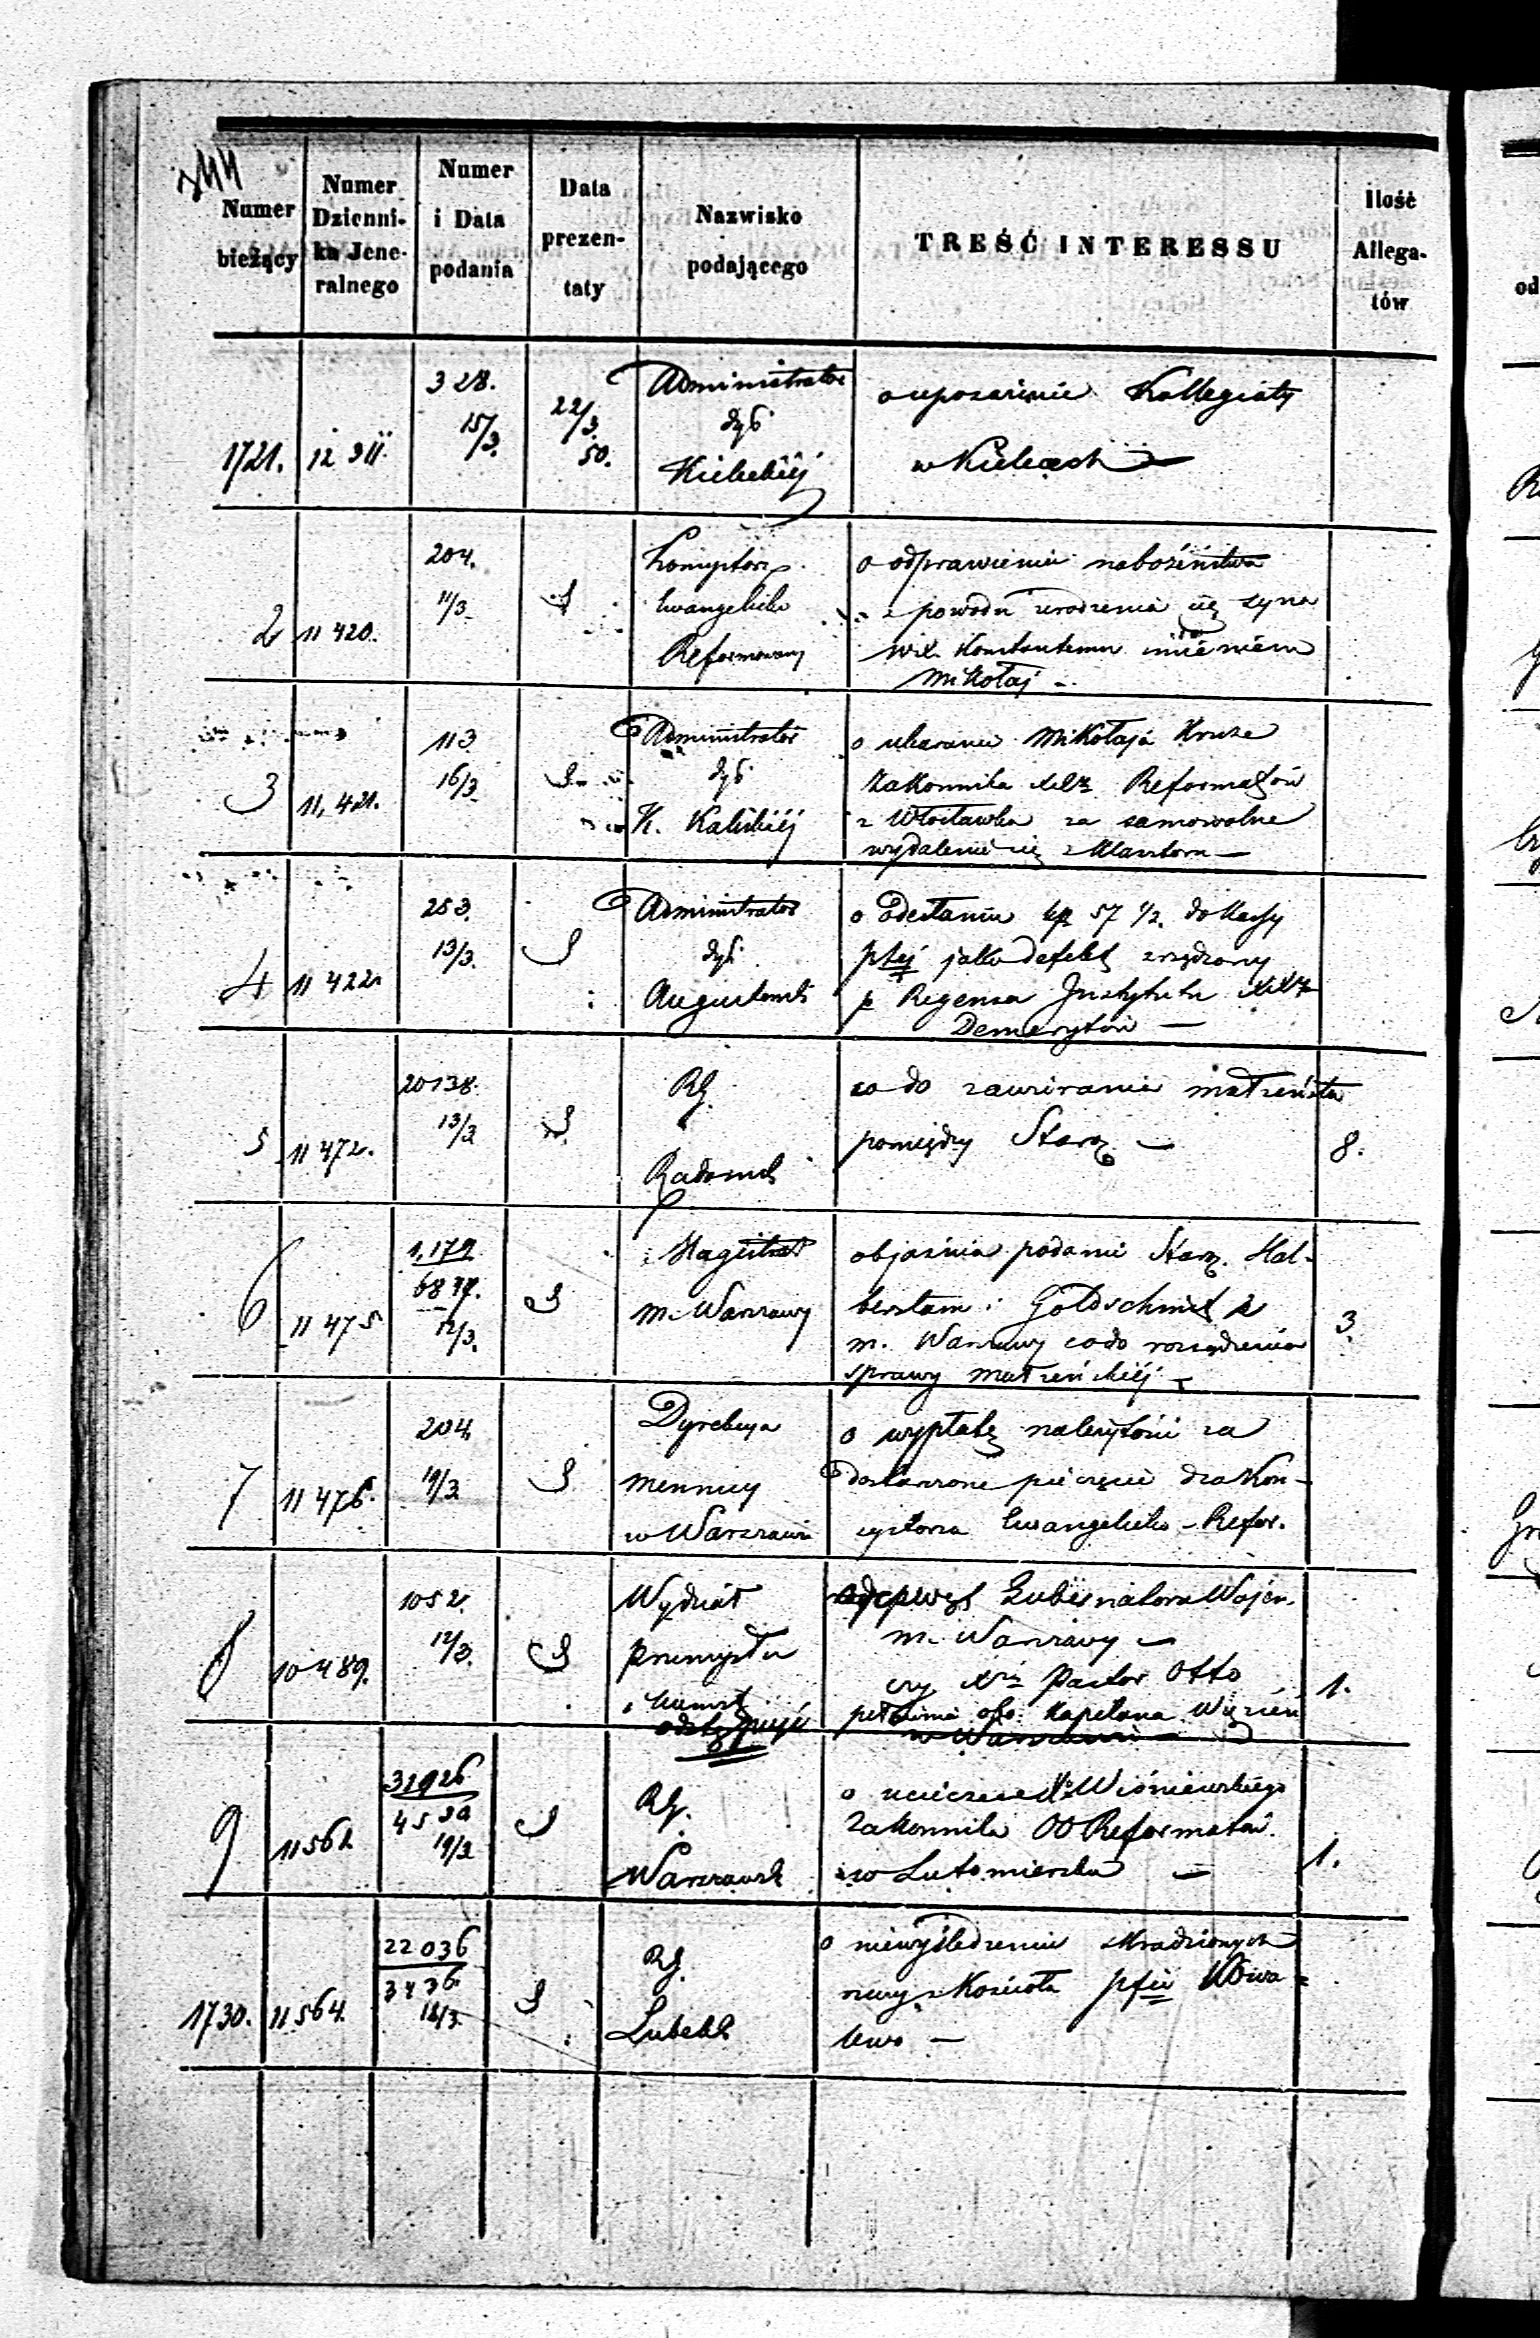 Numer bieżący
Numer Dzienni-ka Jene-ralnego
Numer i Data podania
Data prezen-taty
Nazwisko podającego
TREŚĆ INTERESSU
Ilość Allega-tów
1721. 12 311. 328. 15/3. 22/3. 50.
Administrator
dyć
Kieleckiéj
o uposażenie Kollegiaty
w Kielcach —
2 11 420. 204. 11/3.
Konsystorz
Ewangelicko
Reformowany
o odprawienie nabożeństwa
z powodu urodzenia się syna
WX. Konstantemu imieniem
Mikołaj —
3 11,421. 113 16/3.
Administrator
dyć
K. Kaliskiéj
o ukaranie Mikołaja Kruze
Zakonnika XXży Reformatów
z Włocławka za samowolne
wydalenie się z Klasztoru —
4 11 422. 253. 13/3.
Administrator
dyć.
Augustowsk
o odesłaniu 57 1/2. do Kassy
jako defekt zrządzony
p Regensa Instytutu XXży
Demerytów —
5 11 472. 20138. 13/3
RG.
Radomsk
co do zawierania małżeństw
pomiędzy Staroz —
8.
6 11 475 1,179 12/3.
Magistrat
m. Warszawy
objaśnia podanie Staroz. Hal-
berstam i Goldschmidt z
m. Warszawy co do rozsądzenia
sprawy małżeńskiéj —
3.
7 11 476. 204 19/3
Dyrekcya
mennicy
w Warszawie
o wypłatę należytości za
dostarczone pieczęcie dla Kon-
systorza Ewangelicko-Refor.
8 10 489. 1052. 12/3.
Wydział
przemysłu
i kunszt
odstępuje
Gubernatora Wojen.
m. Warszawy —
czy Xdz Pastor Otto
pełnienie obo. Kapelana Więzień
w Warszawie —
1.
9 11 562 31926 19/3
RG.
Warszawsk
o ucieczce Xa Wiśniewskiego
Zakonnika OO Reformatów.
w Lutomiersku —
1.
1730. 11 564. 22 036 3436. 14/3.
RG.
Lubelsk
o niewyśledzeniu skradzionych
rzeczy z Kościoła pfii Kowa-
lewo —